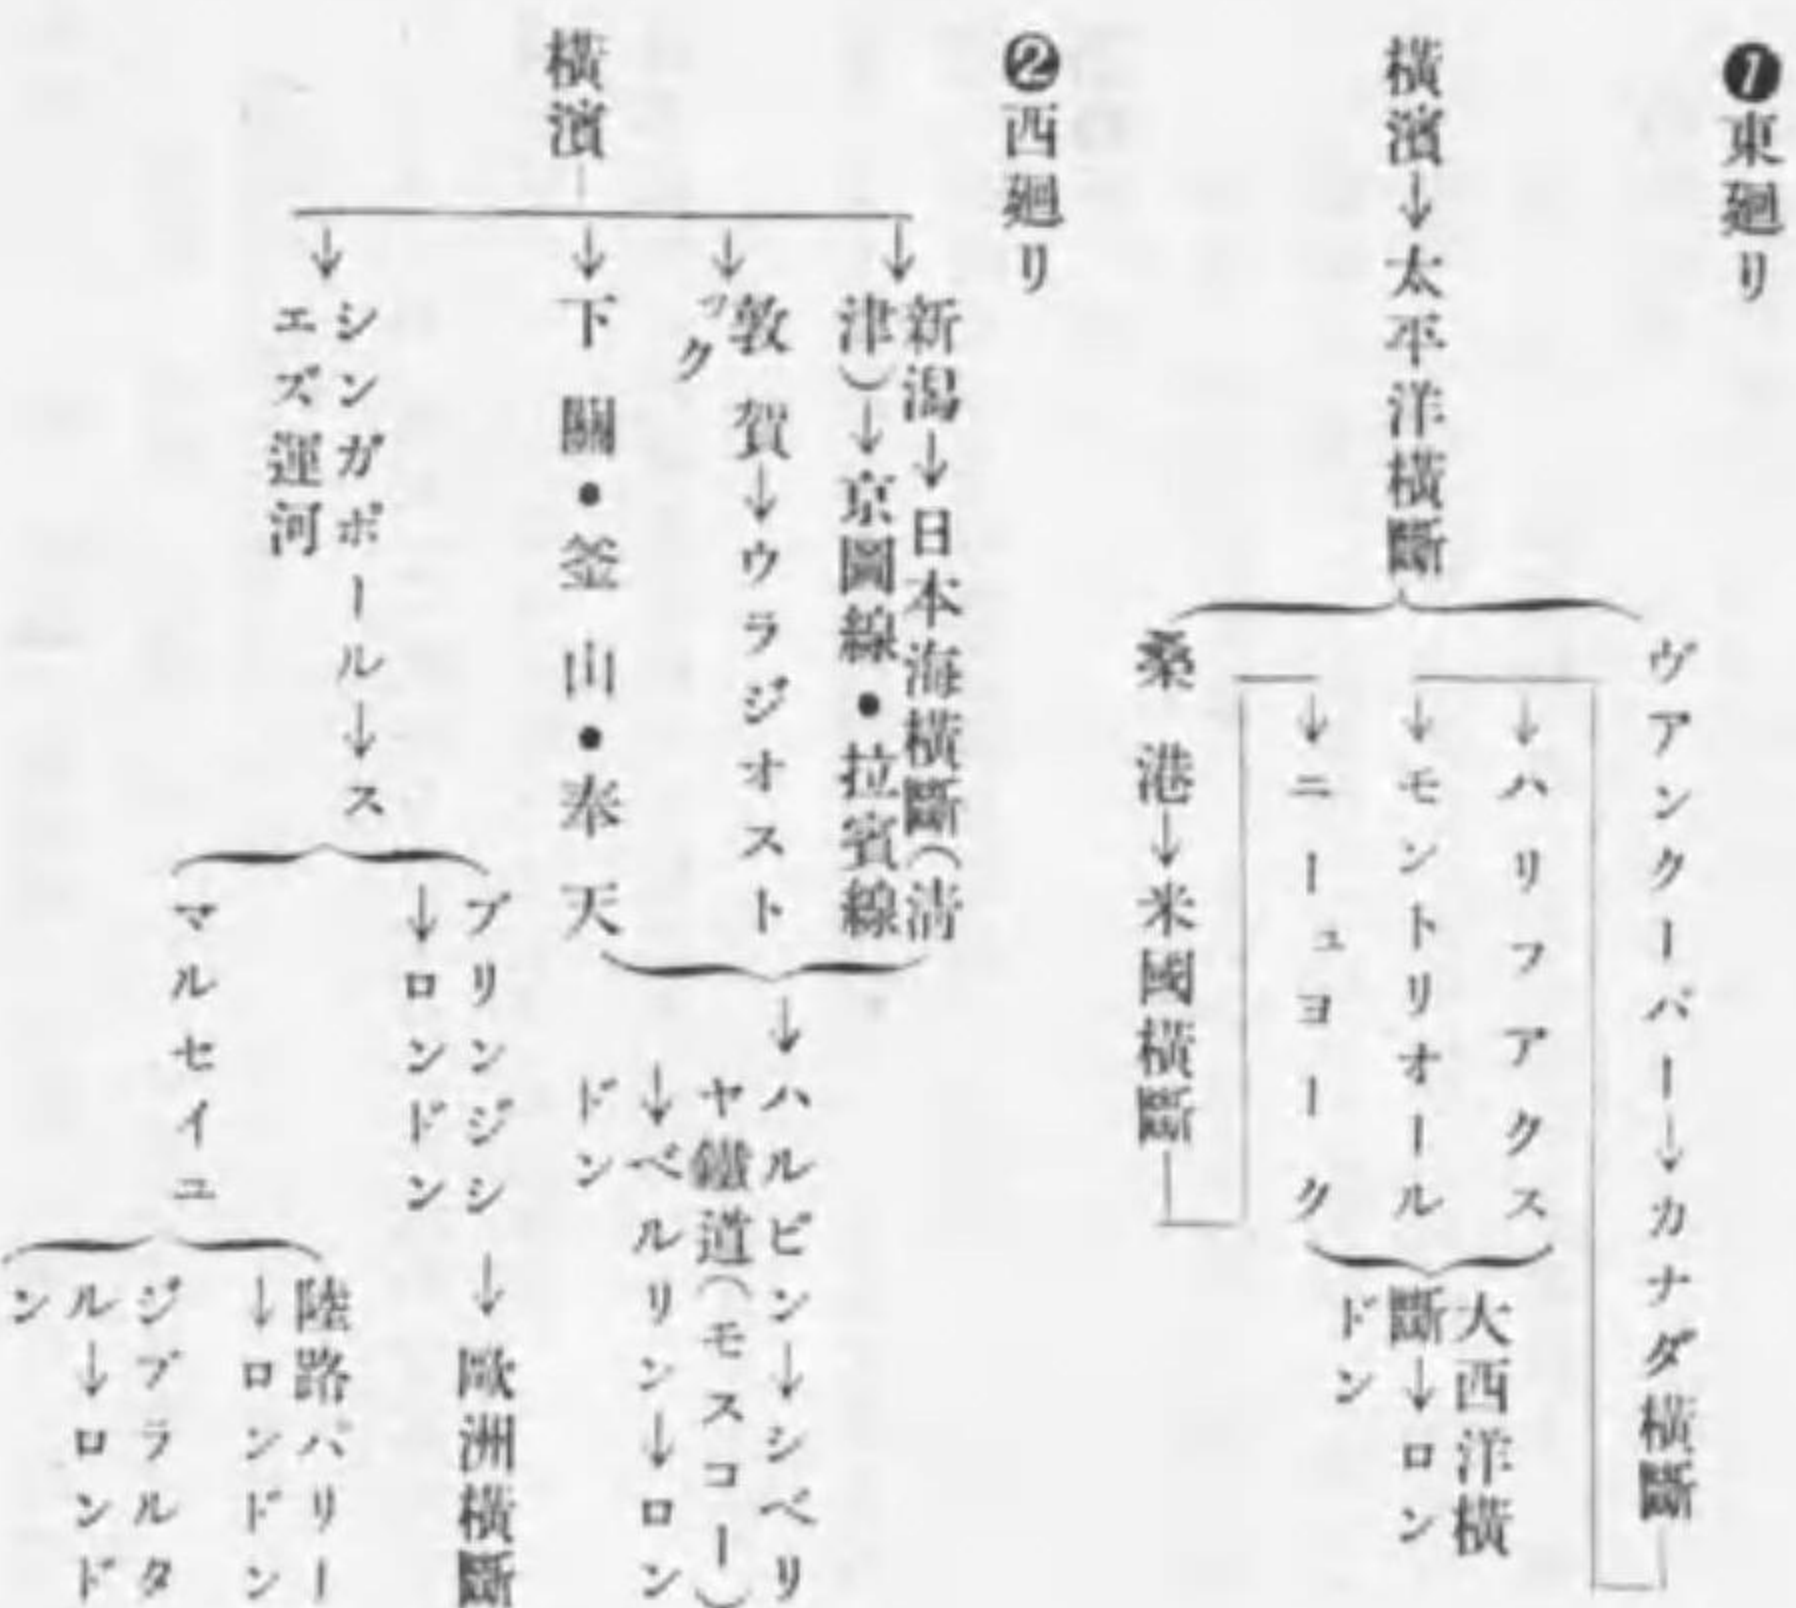 ❶東廻リ
横濱→太平洋横斷
ヴアンクーバー→カナダ横斷
→ハリフアクス
→モントリオール
→ニーュヨーク
大西洋横
斷→ロン
ドン
桑港→米國横斷
❷西廻リ
横濱
→新潟→日本海横斷(淸
津)→京圖線・拉賓線
→敦賀→ウラジオスト
ック
→下關・釜山・奉天
→ハルピン→シベリ
ヤ鐵道(モスコー)
→ベルリン→ロン
ドン
→シンガポール→ス
エズ運河
ブリンジシ→歐洲横斷
→ロンドン
マルセイユ
陸路パリー
→ロンドン
ジブラルタ
ル→ロンド
ン